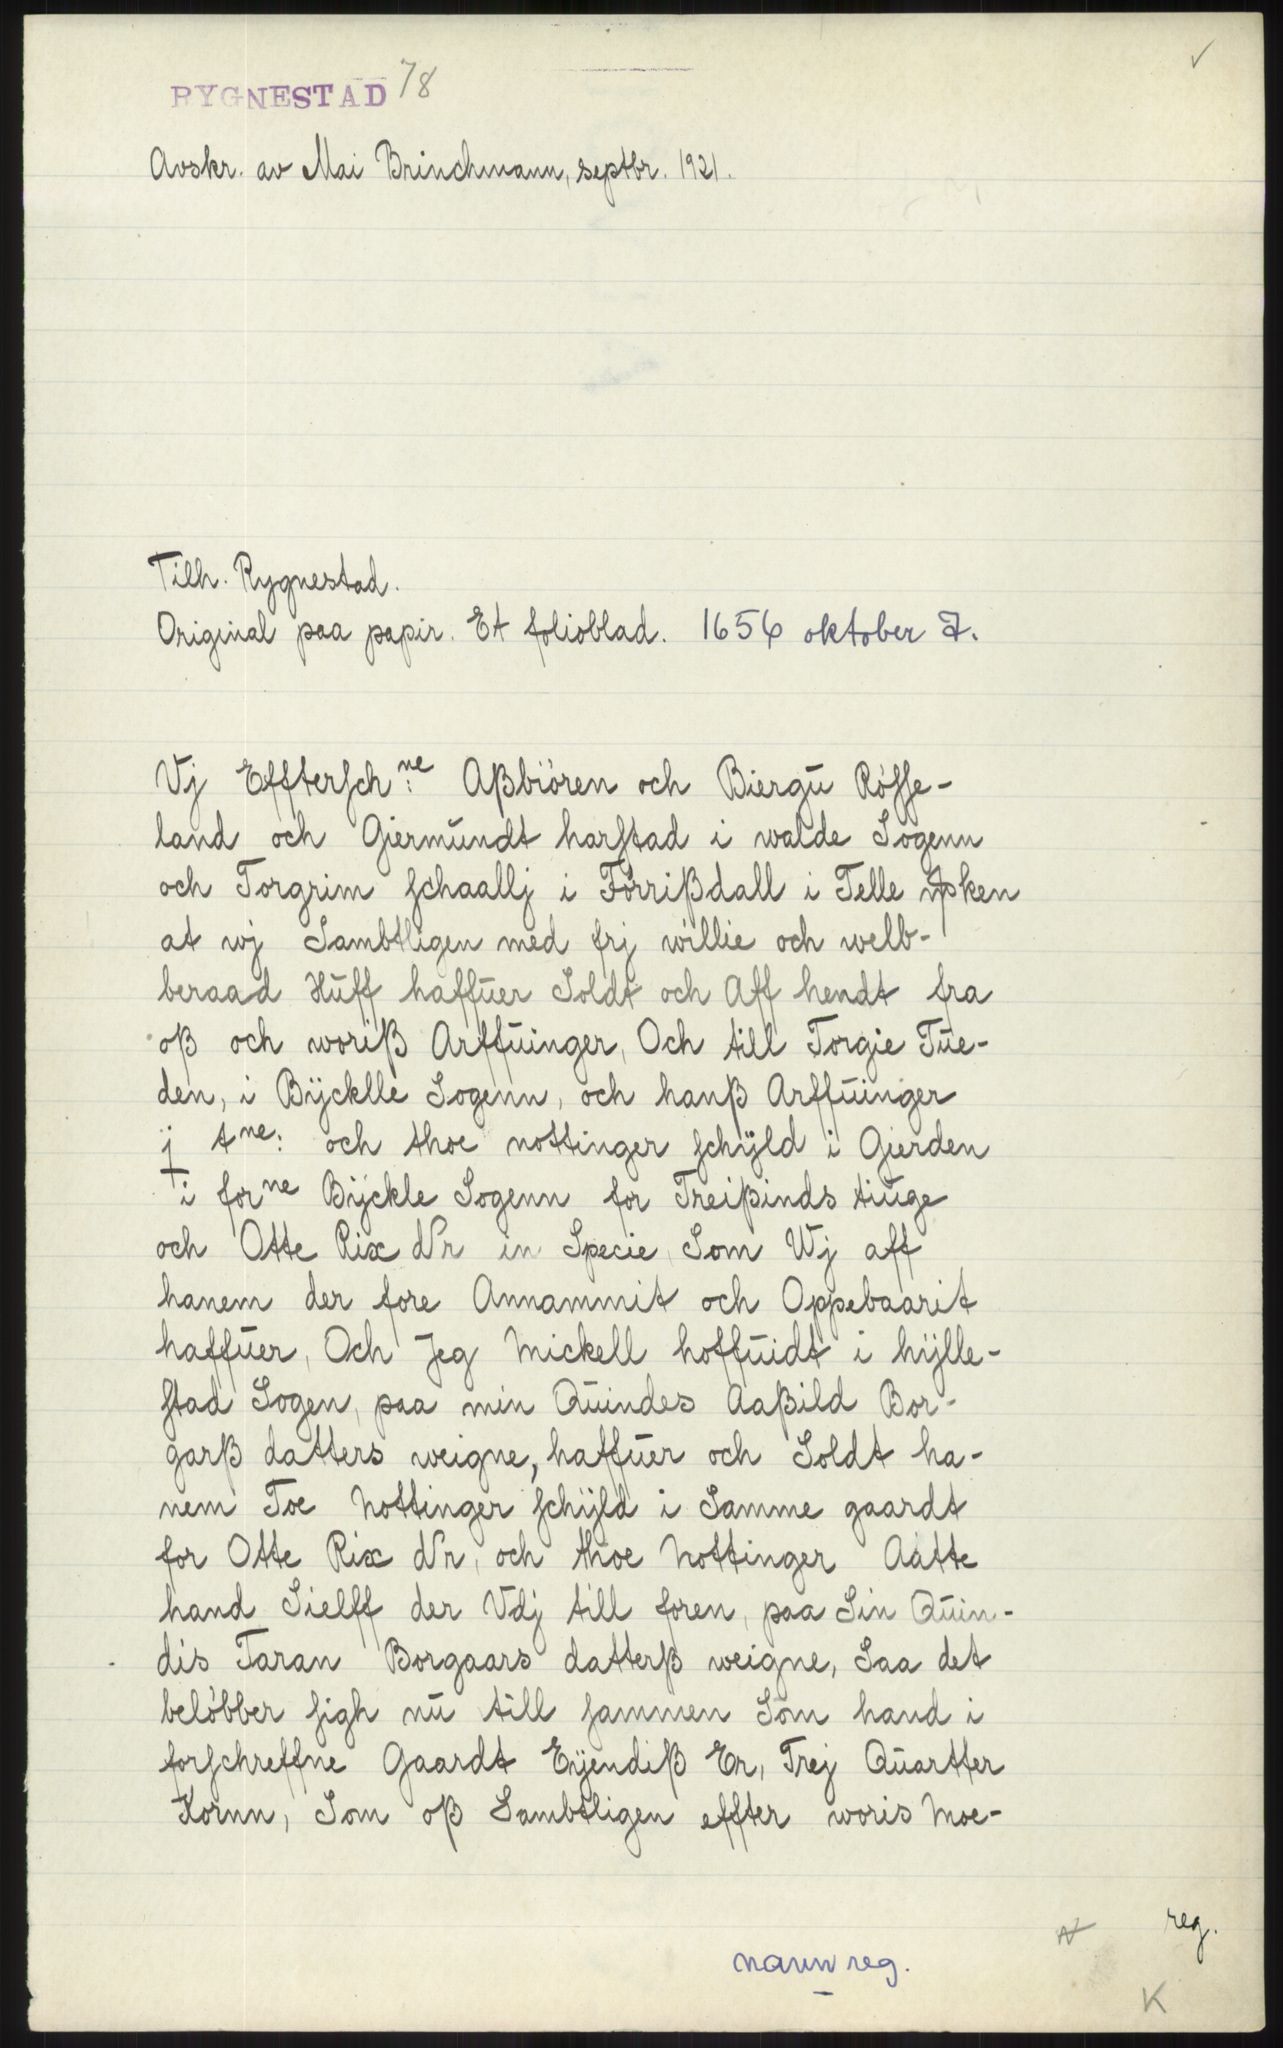 RYGNESTAD 78
Avskr. av Mai Brinchmann, septbr. 1921.
Tilh. Rygnestad.
Original paa papir. Et folioblad. 1656 oktober 7.
Vj Effterschne: Aßbiören och Biergu Røsse-
land och Giermundt harstad i walde Sogenn
och Torgrim schaallj i Førrißdall i Telle
at wj Sambtligen med frj willie och welb-
beraad Huff haffuer Soldt och Aff hendt fra
oß och woriß Arffuinger, Och till Torgie Tue-
den, i Bÿcklle Sogenn, och hanß Arffuinger
j tne: och thoe nottinger schÿld i Gierden
i forne Bÿckle Sogenn for Treißinds tiuge
och Otte Rix dlr in Specie, Som Wj aff
hanem der fore Annammit och Oppebaarit
haffuer, Och Jeg Mickell hoffuidt i hÿlle-
stad Sogen, paa min Quindes Aaßild Bor-
garß datters weigne, haffuer och Soldt ha-
nem Toe Nottinger schÿld i Samme gaardt
for Otte Rix dlr, och thoe Nottinger Aatte
hand Sielff der Vdj till foren, paa Sin Quin-
dis Taran Borgaars datterß weigne, Saa det
beløbber sigh nu till sammen Som hand i
forschreffne Gaardt Eÿendiß Er, Trej Quartter
Kornn, Som oß Sambtligen effter woris Moe-
reg.
navn reg.
K